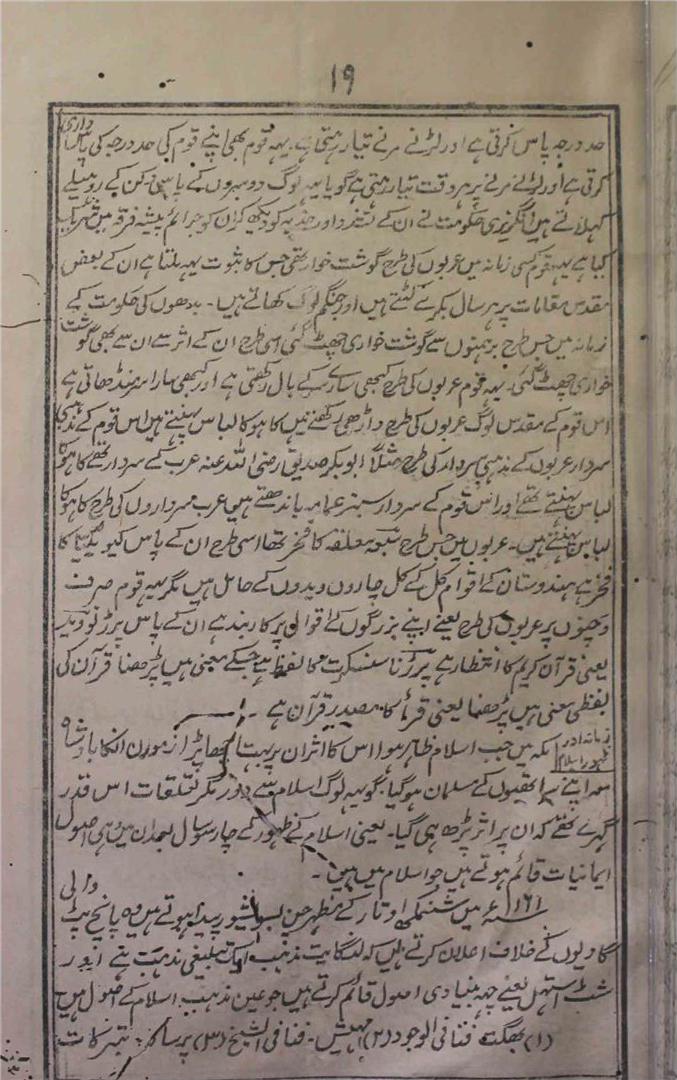 ۱۹
حد درجہ پاس کرتی ہے اور لڑنے مرنے تیار رہتی ہے۔ یہہ قوم بھی اپنے قوم کی حد درجہ کی پاس داری
کرتی ہے اور لڑنے مرنے پر ہر وقت تیار رہتی ہے گویا یہہ لوگ دوسروں کے پاس دکن کے روہیلے
کہلاتے ہیں انگریزی حکومت نے ان کے تشدد اور جذبہ کو دیکھ کر ان کو جرائم پیشہ فرقہ میں شریک
کیا ہے یہہ قوم کسی زمانہ میں عربوں کی طرح گوشت خوار تھی جس کا ثبوت یہہ ملتا ہے ان کے بعض
مقدس مقامات پر ہر سال بکرے کٹتے ہیں اور جنگم لوگ کھاتے ہیں۔ بدھوں کی حکومت کے
زمانہ میں جس طرح برہمنوں سے گوشت خواری چھٹ گئی اسی طرح ان کے اثر سے ان سے بھی گوشت
خواری چھٹ گئی۔ یہہ قوم عربوں کی طرح کبھی سارے سر کے بال رکھتی ہے اور کبھی سارا سر منڈھاتی ہے
اس قوم کے مقدس لوگ عربوں کی طرح داڑھی رکھتے ہیں کاہو کا لباس پہنتے ہیں اس قوم کے مذہبی
سردار عربوں کے مذہبی سردار کی طرح مثلاً ابوبکر صدیق رضی اللہ عنہ عرب کے سردار تھے کاہو کا
لباس پہنتے تھے اور اس قوم کے سردار سبز عمامہ باندھتے ہیں عرب سرداروں کی طرح کاہو کا
لباس پہنتے ہیں۔ عربوں میں جس طرح سبعہ معلقہ کا فخر تھا اسی طرح ان کے پاس کا
فخر ہے ہندوستان کے اقوام کل کے کل چاروں ویدوں کے حامل ہیں مگر یہہ قوم صرف
وچنوں پر عربوں کی طرح یعنے اپنے بزرگوں کے اقوال پر کاربند ہے ان کے پاس
یعنی قرآن کریم کا انتظار ہے پڑڑنا سنسکرت کا لفظ ہے جسکے معنی ہیں پڑھنا قرآن کی
لفظی معنی ہیں پڑھنا یعنی قرأ کا مصدر قرآن ہے۔
زمانہ اور ظہور اسلام
مکہ میں جب اسلام ظاہر ہوا اس کا اثر ان پر بہت اچھا پڑا ان کا بادشاہ
معہ اپنے ساتھیوں کے مسلمان ہوگیا۔ گو یہہ لوگ اسلام سے دور مگر تعلقات اس قدر
گہرے تھے کہ ان پر اثر پڑھ ہی گیا۔ یعنی اسلام کے ظہور کے چار سو سال بعد ان میں وہی اصول
ایمانیات قائم ہوتے ہیں جو اسلام میں ہیں۔
میں اوتار کے مظہر چن بسویشور پیدا ہوتے ہیں وہ پانچ پٹ والی
گادیوں کے خلاف اعلان کرتے ہیں کہ لنگایت مذہب ایک تبلیغی مذہب بنے اور
شٹ استھل یعنے چہہ بنیادی اصول قائم کرتے ہیں جو عین مذہب اسلام کے اصول ہیں
(۱) بھگت فنافی الوجود (۲) مہیش۔ فنافی الشیخ (۳)